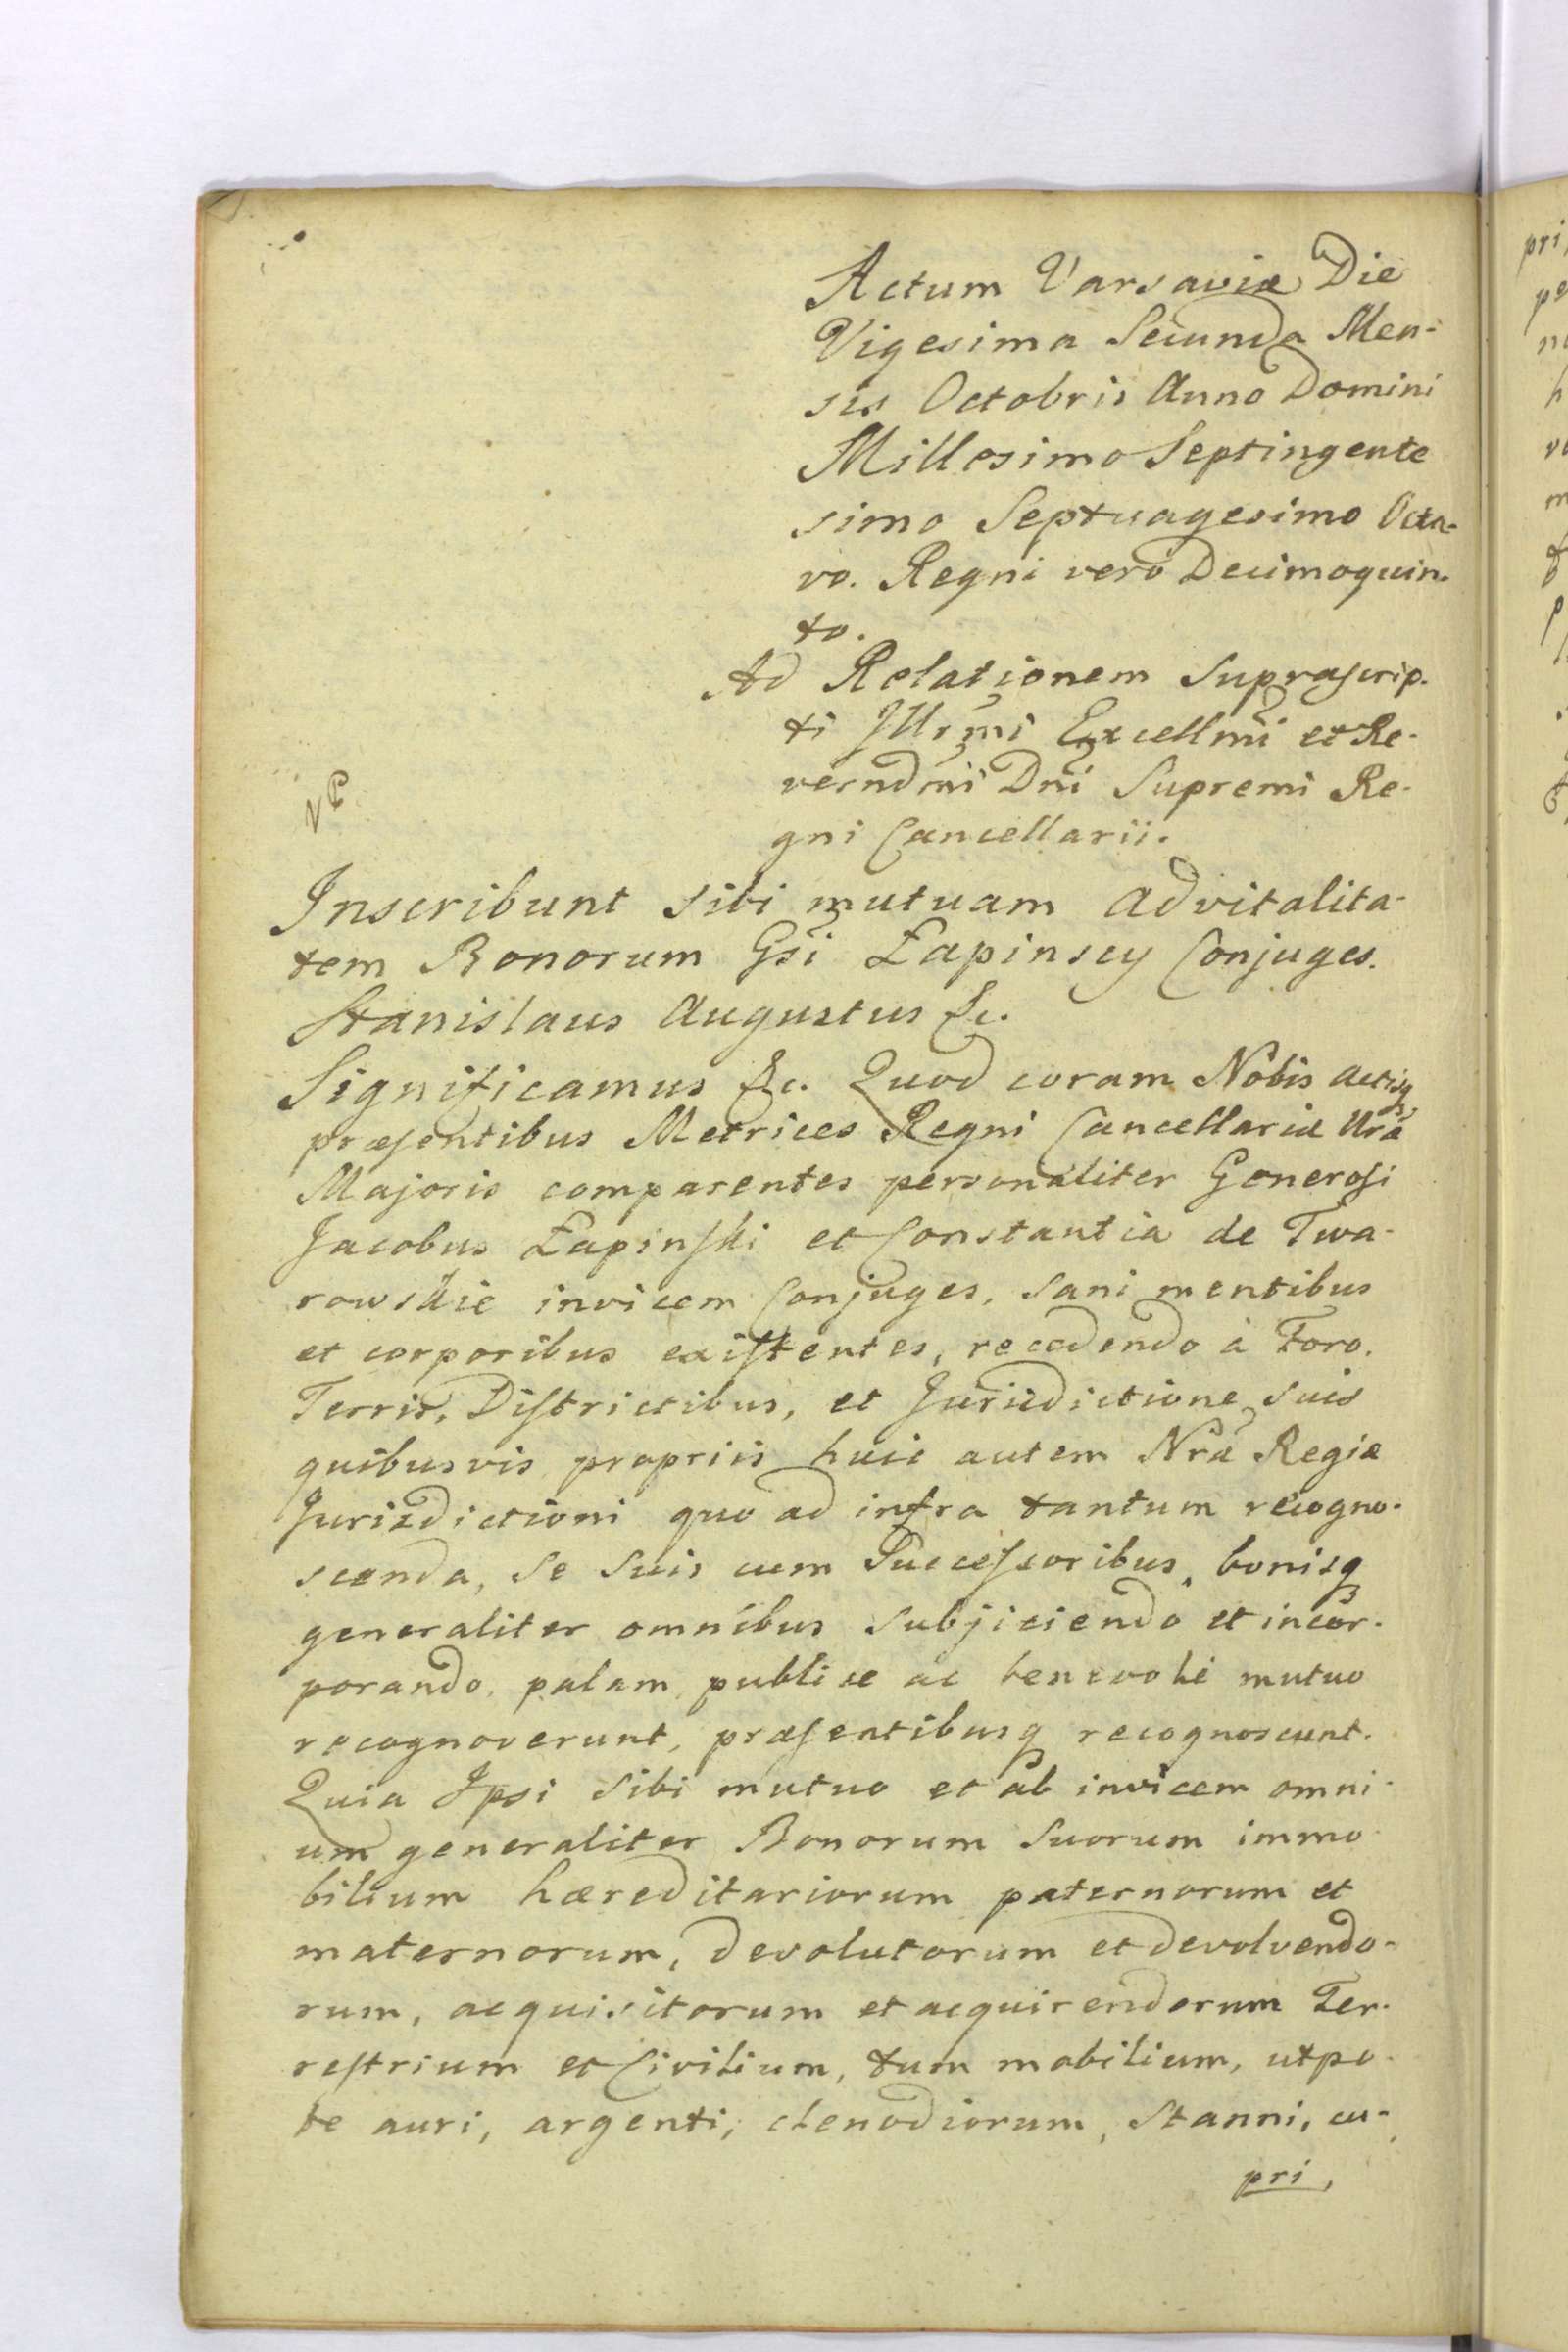 Actum Varsaviæ Die
Vigesima Secunda Men-
sis Octobris Anno Domini
Millesimo Septingente
simo Septuagesimo Octa-
vo. Regni verò Decimoquin-
to.
Ad Relationem Suprascrip-
ti Illrmi Excellmi et Re-
verndmi Dni Supremi Re-
gni Cancellarii.
Inscribunt sibi mutuam advitalita-
tem Bonorum Gsi Łapinscy Conjuges.
Stanislaus Augustus &c.
Significamus &c. Quod coram Nobis actisq
præsentibus Metrices Regni Cancellariæ Nrã
Majoris comparentes personaliter Generosi
Jacobus Łapinski et Constantia de Twa-
rowskie invicem Conjuges, sani mentibus
et corporibus existentes, recedendo à Foro,
Terris, Districtibus, et Jurisdictione suis
quibusvis propriis huic autem Nrã Regiæ
Jurisdictioni quo ad infra tantum recogno-
scenda, se suis cum Successoribus, bonisq
generaliter omnibus subjiciendo et incor-
porando, palam publice ac benevolè mutuo
recognoverunt, præsentibusq recognoscunt.
Quia Ipsi sibi mutuo et ab invicem omni-
um generaliter Bonorum suorum immo-
bilium hæreditariorum paternorum et
maternorum, devolutorum et devolvendo-
rum, acquisitorum et acquirendorum Ter-
restrium et Civilium, tum mobilium, utpo-
te auri, argenti, clenodiorum, Stanni, cu-
pri,